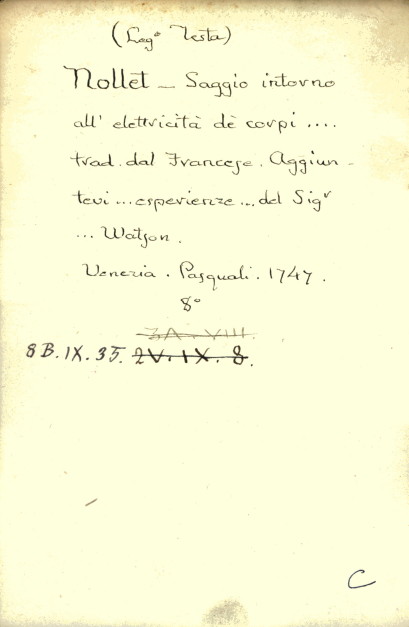 (Legº Testa)
Nollet – Saggio intorno
all' elettricità dè corpi ....
trad. dal Francese. Aggiun-
tevi ... esperienze ... del Sigr
... Watson.
Venezia. Pasquali. 1747.
8º
3A. VIII.
8B. IX. 35. 2V. IX. 8.
C